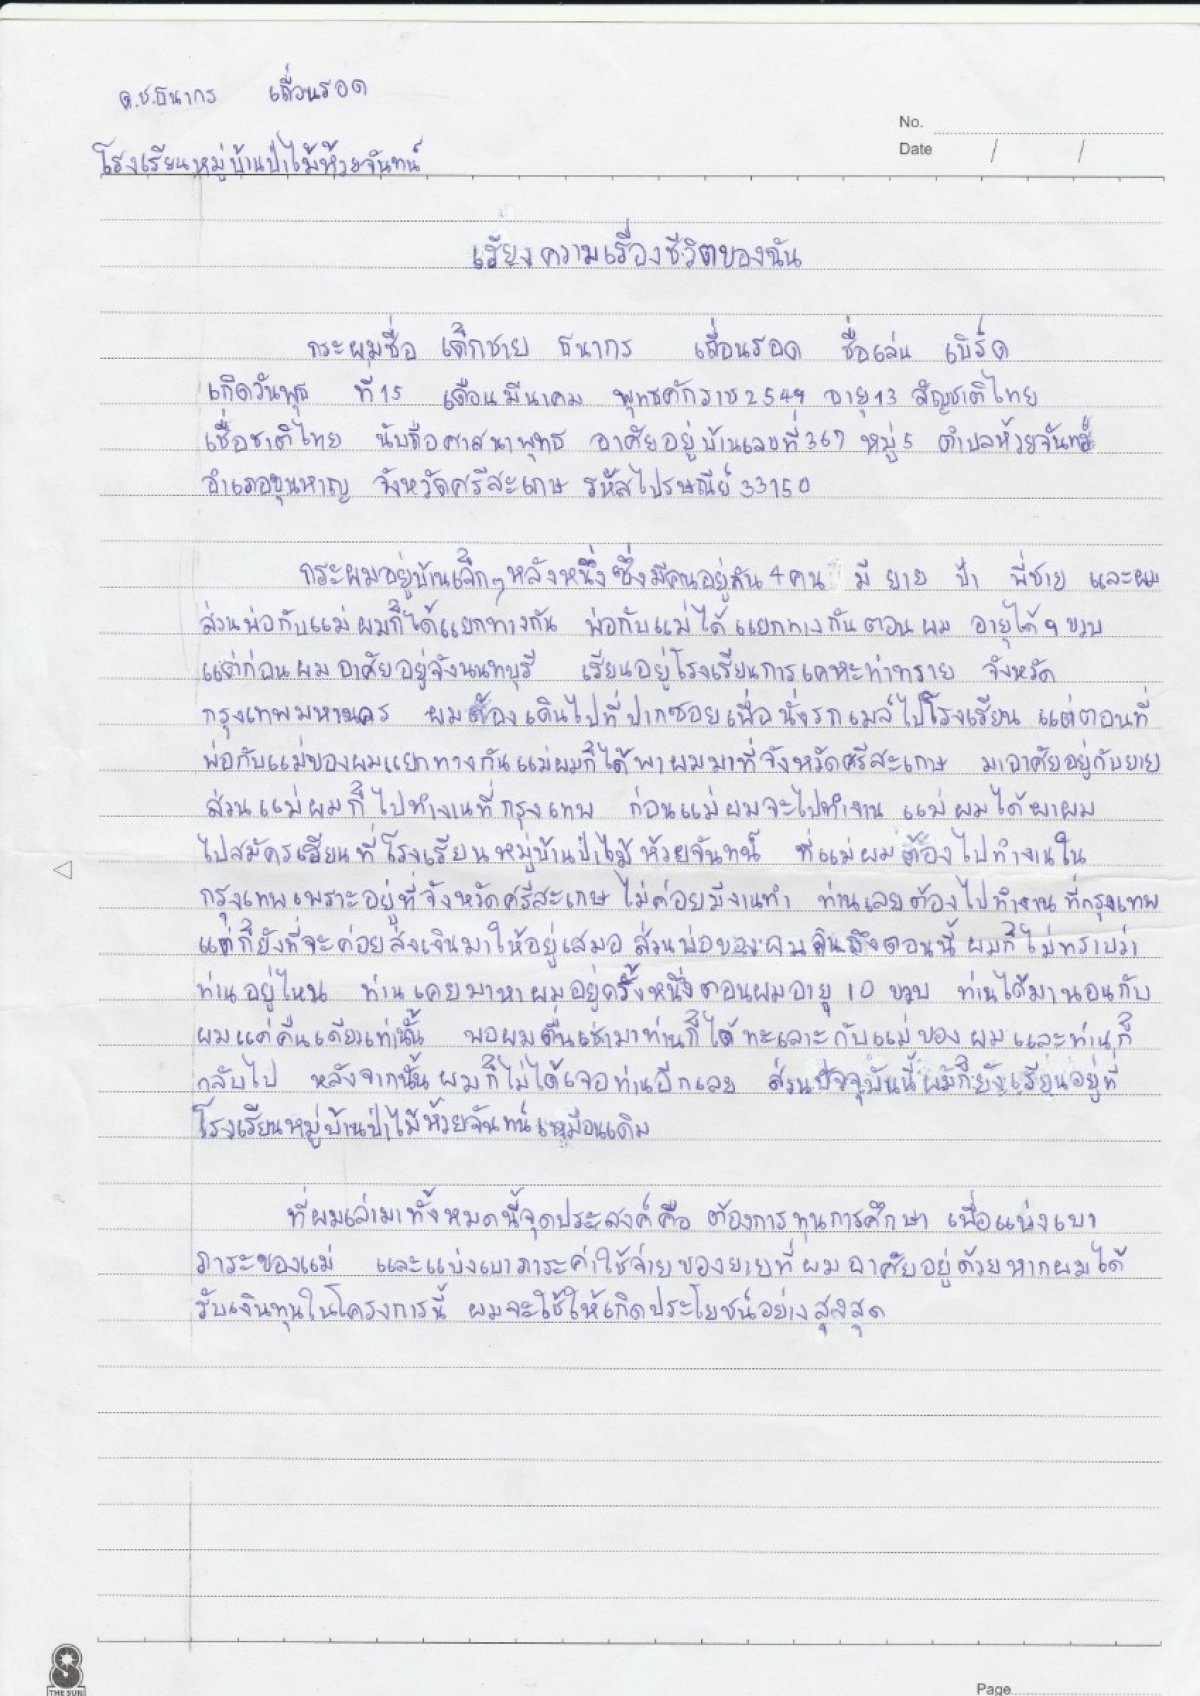 ด.ช.ธนากร เถื่อนรอด
No.
Date / /
โรงเรียนหมู่บ้านป่าไม้ห้วยจันทน์
เรียงความเรื่องชีวิตของฉัน
กระผมชื่อ เด็กชาย ธนากร เถื่อนรอด ชื่อเล่น เบิร์ด
เกิดวันพุธ ที่ 15 เดือนมีนาคม พุทธศักราช 2549 อายุ 13 สัญชาติไทย
เชื้อชาติไทย นับถือศาสนาพุทธ อาศัยอยู่บ้านเลขที่ 367 หมู่ 5 ตำบลห้วยจันทร์
อำเภอขุนหาญ จังหวัดศรีสะเกษ รหัสไปรษณีย์ 33150
กระผมอยู่บ้านเล็กๆ หลังหนึ่งซึ่งมีคนอยู่กัน 4 คน มี ยาย ป้า พี่ชาย และผม
ส่วนพ่อกับแม่ ผมก็ได้แยกทางกัน พ่อกับแม่ได้แยกทางกันตอนผม อายุได้ 9 ขวบ
แต่ก่อนผมอาศัยอยู่จังนนทบุรี เรียนอยู่โรงเรียนการเคหะท่าทราย จังหวัด
กรุงเทพมหานคร ผมต้องเดินไปที่ปากซอยเพื่อนั่งรถเมล์ไปโรงเรียน แต่ตอนที่
พ่อกับแม่ของผมแยกทางกันแม่ผมก็ได้พาผมมาที่จังหวัดศรีสะเกษ มาอาศัยอยู่กับยาย
ส่วนแม่ผมก็ไปทำงานที่กรุงเทพ ก่อนแม่ผมจะไปทำงาน แม่ผมได้พาผม
ไปสมัครเรียนที่โรงเรียนหมู่บ้านป่าไม้ห้วยจันทน์ ที่แม่ผมต้องไปทำงานใน
กรุงเทพเพราะอยู่ที่จังหวัดศรีสะเกษไม่ค่อยมีงานทำ ท่านเลยต้องไปทำงานที่กรุงเทพ
แต่ก็ยังที่จะค่อยส่งเงินมาให้อยู่เสมอ ส่วนพ่อของผมจนถึงตอนนี้ ผมก็ไม่ทราบว่า
ท่านอยู่ไหน ท่านเคยมาหาผมอยู่ครั้งหนึ่งตอนผมอายุ 10 ขวบ ท่านได้มานอนกับ
ผมแค่คืนเดียวเท่านั้น พอผมตื่นเช้ามาท่านก็ได้ทะเลาะกับแม่ของผมและท่านก็
กลับไป หลังจากนั้นผมก็ไม่ได้เจอท่านอีกเลย ส่วนปัจจุบันนี้ผมก็ยังเรียนอยู่ที่
โรงเรียนหมู่บ้านป่าไม้ห้วยจันทน์เหมือนเดิม
ที่ผมเล่ามาทั้งหมดนี้จุดประสงค์คือ ต้องการทุนการศึกษา เพื่อแบ่งเบา
ภาระของแม่ และแบ่งเบาภาระค่าใช้จ่ายของยายที่ผมอาศัยอยู่ด้วยหากผมได้
รับเงินทุนในโครงการนี้ ผมจะใช้ให้เกิดประโยชน์อย่างสูงสุด
THE SUN
Page